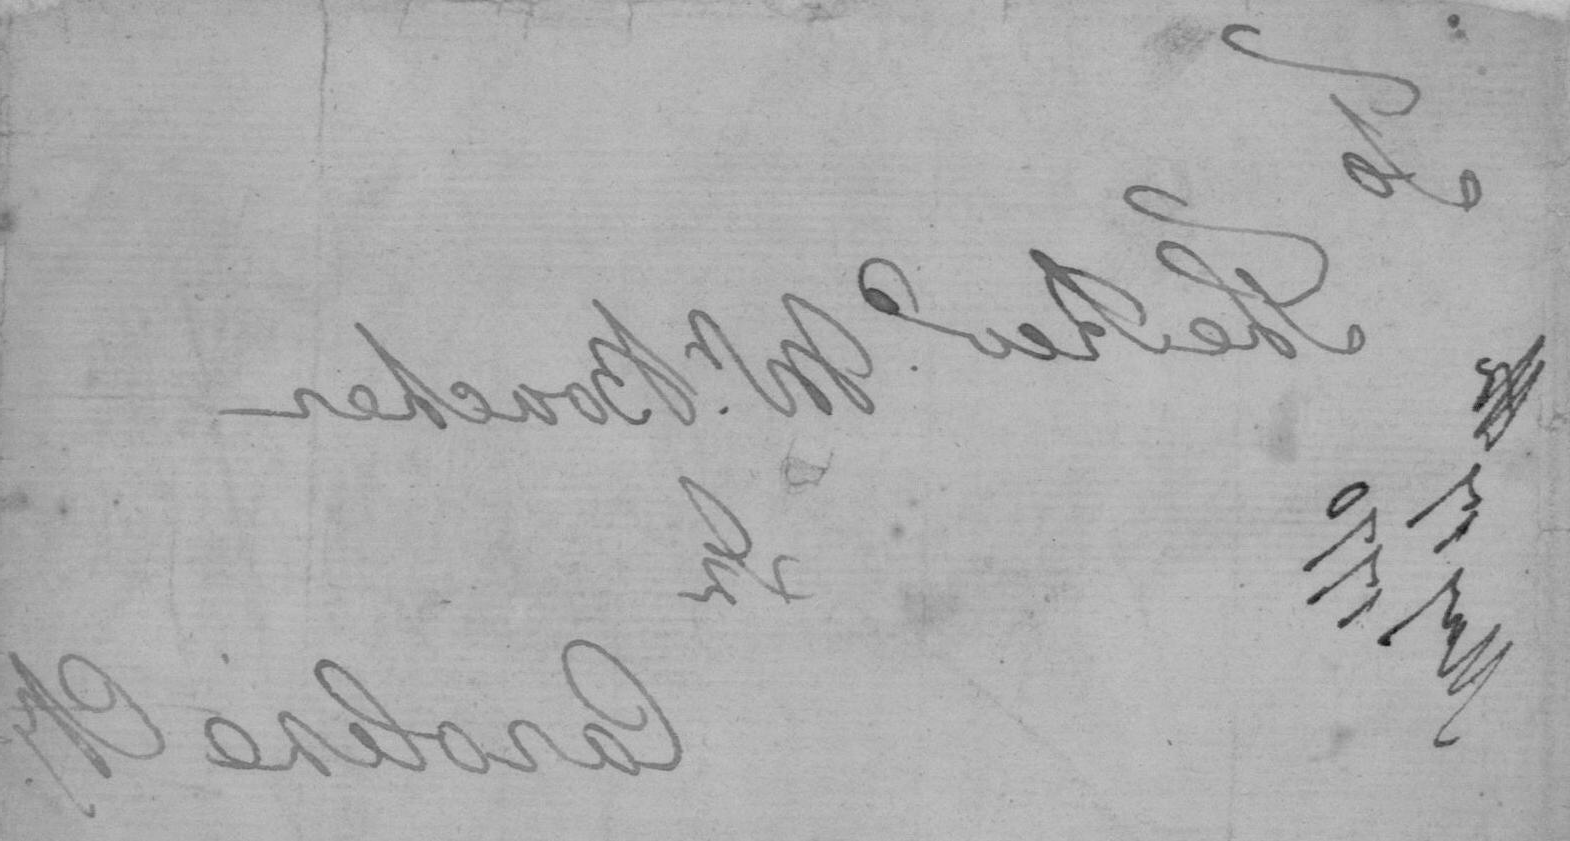 To
The Revd. Mr. Boucher
In
Caroline Cty
May
1770